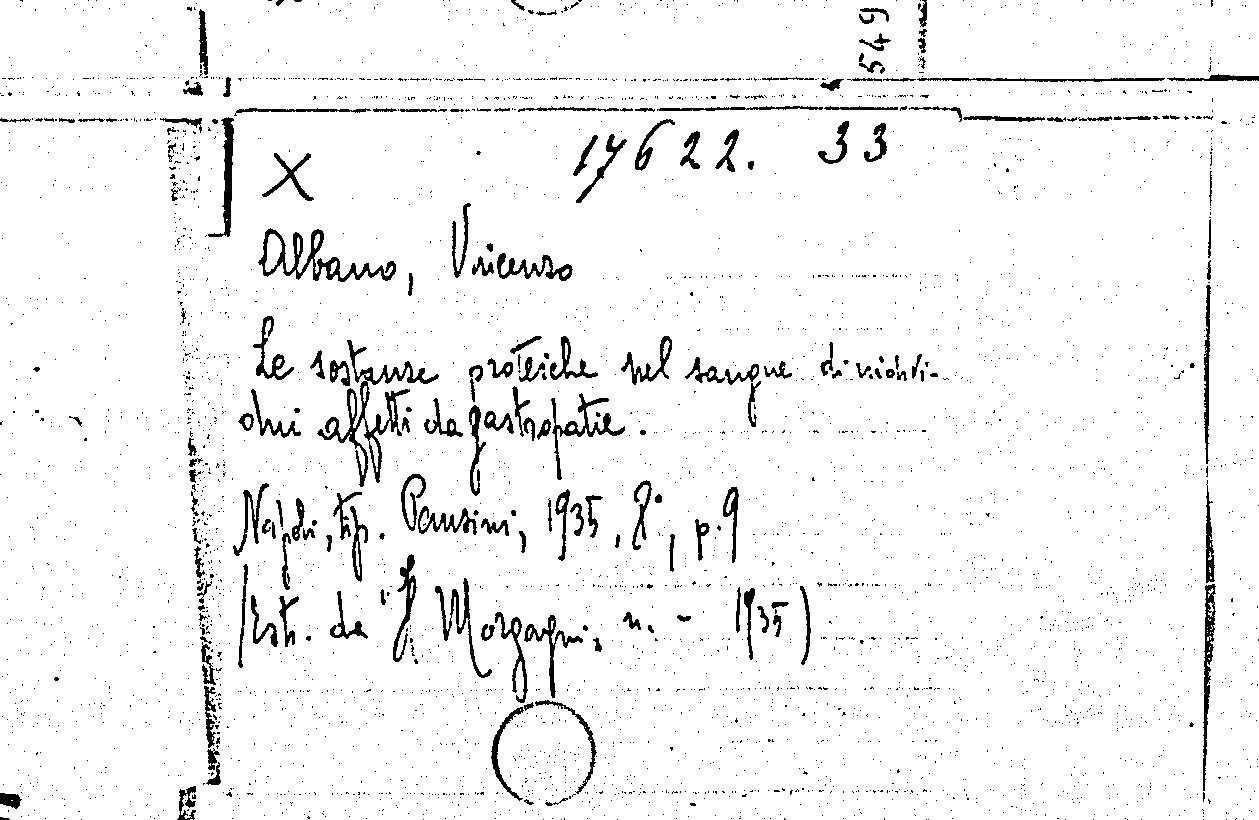 549
X 17622. 33
Albano, Vincenzo
Le sostanze proteiche nel sangue di indivi-
dui affetti da gastropatie.
Napoli, tip. Pansini, 1935, 8°, p. 9
(Estr. da "Il Morgagni" n. - 1935)